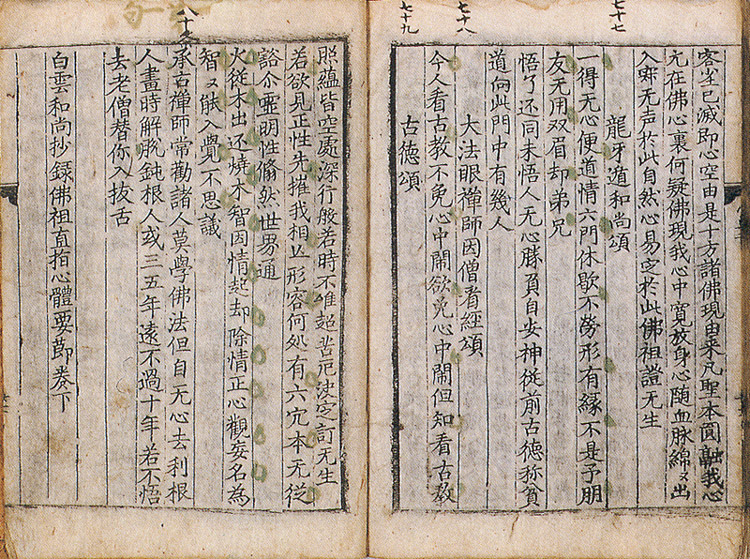 七十七
七十八
七十九
客塵已滅即心空由是十方諸佛現由来凡聖本圓融我心
元在佛心裏何疑佛現我心中寬放身心随血脉綿々出
入寂无声於此自然心易定於此佛祖證无生
龍牙遁和尚頌
一得无心便道情六門休歇不勞形有緣不是予朋
友无用双眉却弟兄
悟了还同未悟人无心勝負自安神從前古德称貧
道向此門中有幾人
大法眼禪師因僧看經頌
今人看古教不免心中鬧欲免心中鬧但知看古教
古德頌
八十
照蘊皆空處深行般若時不唯超苦厄決定訂无生
若欲見正性先摧我相丘形容何処有六穴本无從
谽尒靈明性翛然世界通
火從木出还燒木智因情起却除情正心觀妄名為
智々能入覺不思議
承古禪師常勸諸人莫學佛法但自无心去利根
人畫時解脫鈍根人或三五年遠不過十年若不悟
去老僧替你入拔舌
白雲和尚抄録佛祖直指心體要節卷下